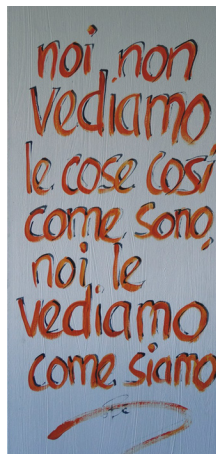 noi non
vediamo
le cose così
come sono,
noi le
vediamo
come siamo